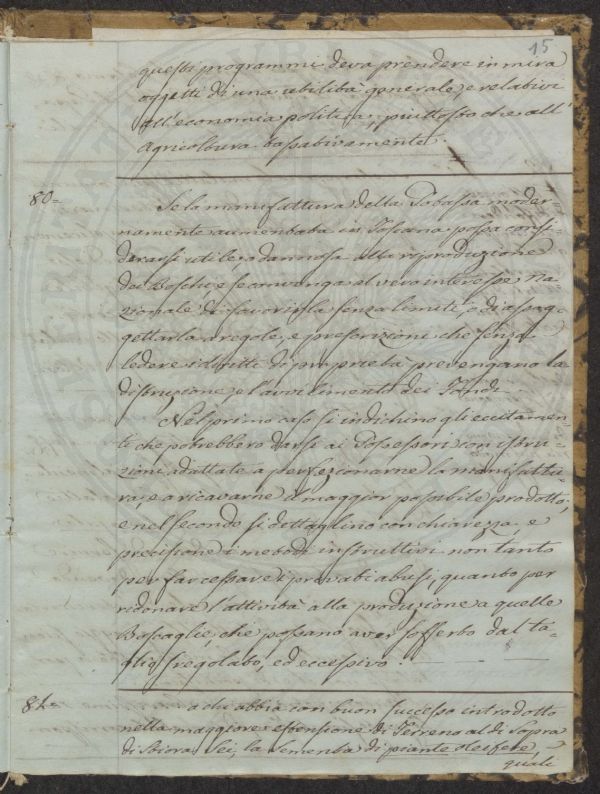 15
questi programmi deva prendere in mira
oggetti di una utilità generale, e relativi
all'economia politica, piuttosto che all'
Agricoltura tassativamente.
80=
Se la manifattura della Potassa moder-
namente aumentata in Toscana possa consi-
derarsi utile, o dannosa alla riproduzione
de Boschi, e se convenga al vero interesse Na-
zionale di favorirla senza limiti, o di assog-
gettarla a regole, e prescrizioni che senza
ledere i diritti di proprietà prevengano la
distruzione, e l'avvilimento dei Fondi.
Nel primo caso si indichino gli eccitamen-
ti che potrebbero darsi ai Possessori con istru-
zioni adattate a perfezionarne la manifattu-
ra, e a ricavarne il maggior possibile prodotto;
e nel secondo si dettaglino con chiarezza e
precisione i metodi instruttivi non tanto
per far cessare i provati abusi, quanto per
ridonare l'attività alla produzione a quelle
Boscaglie, che possano aver sofferto dal ta-
glio sregolato, ed eccessivo.
81=
a chi abbia con buon successo introdotto
nella maggiore estensione di Terreno al di sopra
di Stiora Sei, la sementa di piante oleifere,
quale